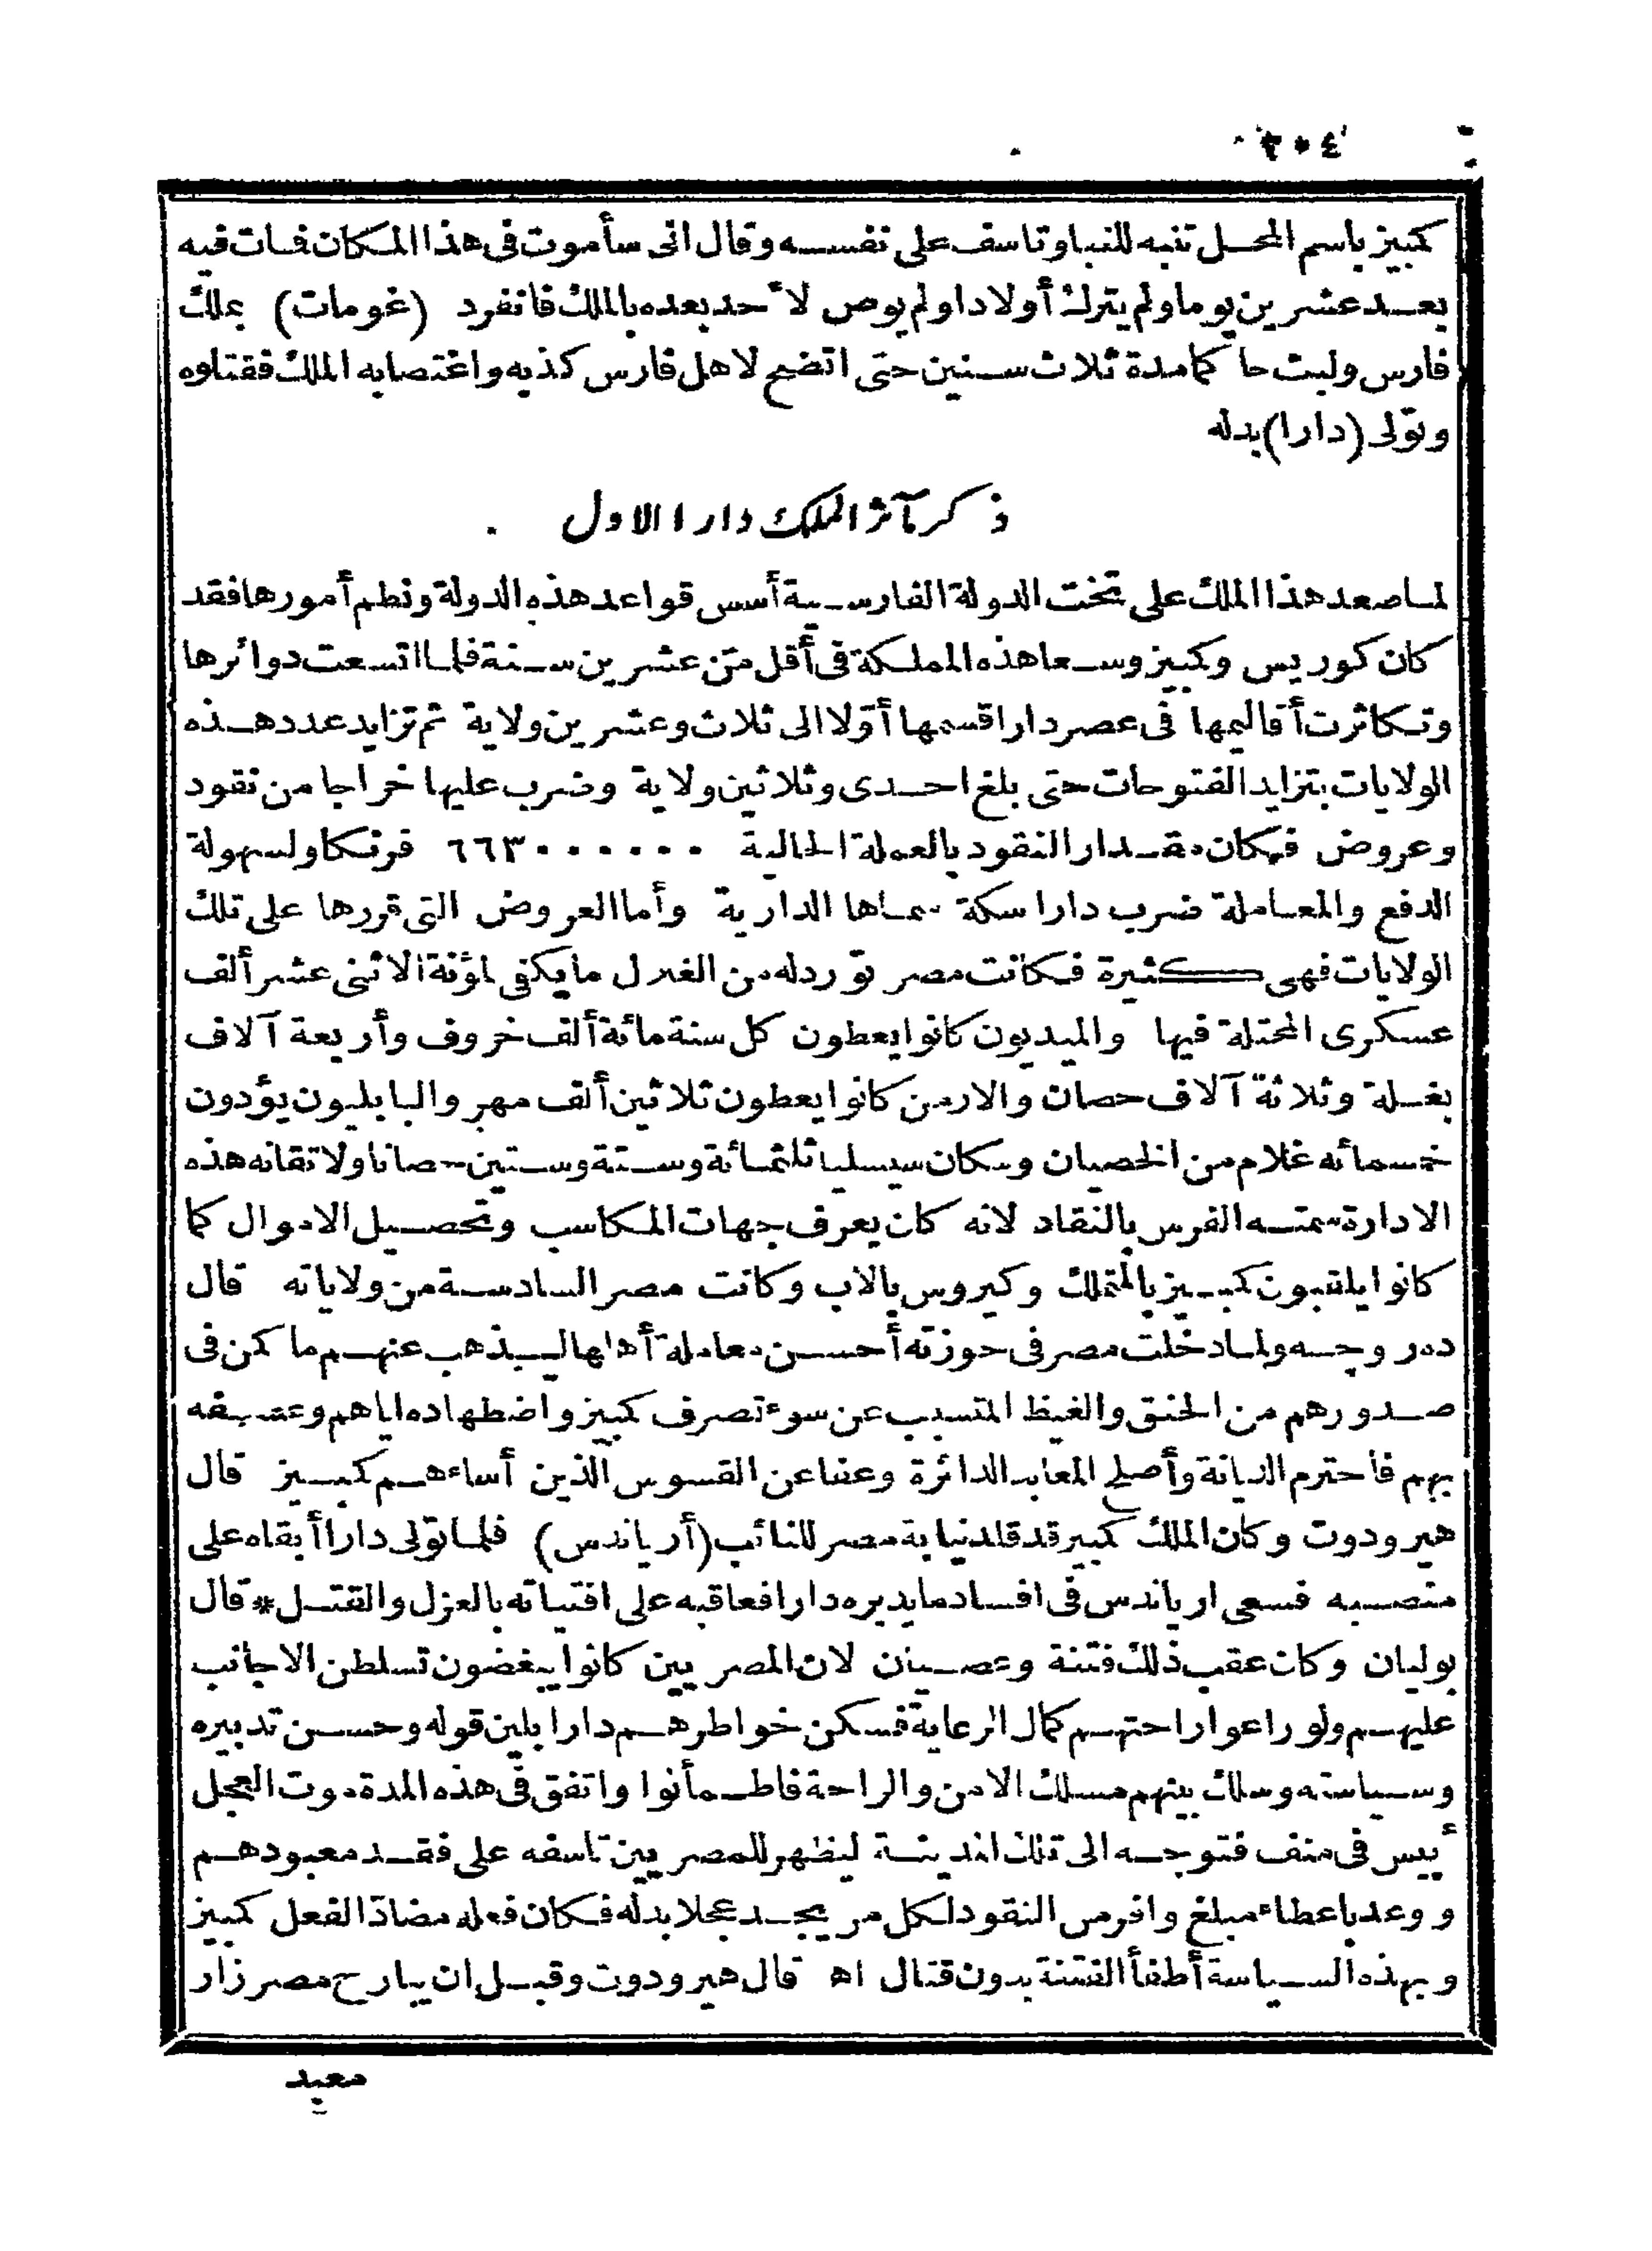 كمبيز باسم المحل تنبه للنبا وتاسف على نفسه وقال انى سأموت فى هذا المكان فات فيه
بعد عشرين يوما ولم يترك أولادا ولم يوص لأحد بعده بالملك فانفرد (غومات) بملك
فارس ولبث حاكما مدة ثلاث سنين حتى اتضح لاهل فارس كذبه واغتصابه الملك فقتلوه
وتولى (دارا) بدله
ذكر مآثر الملك دارا الاول
لما صعد هذا الملك على تخت الدولة الفارسية أسس قواعد هذه الدولة ونظم أمورها فقد
كان كوريس وكمبيز وسعا هذه المملكة فى أقل من عشرين سنة فلما اتسعت دوائرها
وتكاثرت أقاليمها فى عصر دارا قسمها أولا الى ثلاث وعشرين ولاية ثم تزايد عدد هذه
الولايات بتزايد الفتوحات حتى بلغ احدى وثلاثين ولاية وضرب عليها خراجا من نقود
وعروض فكان مقدار النقود بالعملة الحالية ٦٦٣٠٠٠٠٠٠ فرنكا ولسهولة
الدفع والمعاملة ضرب دارا سكة سماها الدارية وأما العروض التى قررها على تلك
الولايات فهى كثيرة فكانت مصر تورد له من الغلال ما يكفى لمؤنة الاثنى عشر ألف
عسكرى المحتلة فيها والميديون كانوا يعطون كل سنة مائة ألف خروف وأربعة آلاف
بغلة وثلاثة آلاف حصان والارمن كانوا يعطون ثلاثين ألف مهر والبابليون يؤدون
خمسمائه غلام من الخصيان وسكان سيسليا ثلثمائة وستة وستين حصانا ولاتقانه هذه
الادارة سمته الفرس بالنقاد لانه كان يعرف جهات المكاسب وتحصيل الاموال كما
كانوا يلقبون كمبيز بالمتملك وكيروس بالاب وكانت مصر السادسة من ولاياته قال
دمروجه ولما دخلت مصر فى حوزته أحسن معاملة أهلها ليذهب عنهم ما كمن فى
صدورهم من الحنق والغيظ المتسبب عن سوء تصرف كمبيز واضطهاده اياهم وعسفه
بهم فاحترم الديانة وأصلح المعابد الدائرة وعفا عن القسوس الذين أساءهم كمبيز قال
هيرودوت وكان الملك كمبيز قد قلد نيابة مصر للنائب (أرياندس) فلما تولى دارا أبقاه على
منصبه فسعى ارياندس فى افساد ما يدبره دارا فعاقبه على افتياته بالعزل والقتل * قال
بوليان وكان عقب ذلك فتنة وعصيان لان المصريين كانوا يبغضون تسلطن الاجانب
عليهم ولو راعوا راحتهم كمال الرعاية فسكن خواطرهم دارا بلين قوله وحسن تدبيره
وسياسته وسلك بينهم مسلك الامن والراحة فاطمأنوا واتفق فى هذه المدة موت العجل
أبيس فى منف فتوجه الى تلك المدينة ليظهر للمصريين تاسفه على فقد معبودهم
ووعد باعطاء مبلغ وافر من النقود لكل من يجد عجلا بدله فكان فعله مضادا لفعل كمبيز
وبهذه السياسة أطفأ الفتنة بدون قتال اه قال هيرودوت وقبل ان يبارح مصر زار
معبد